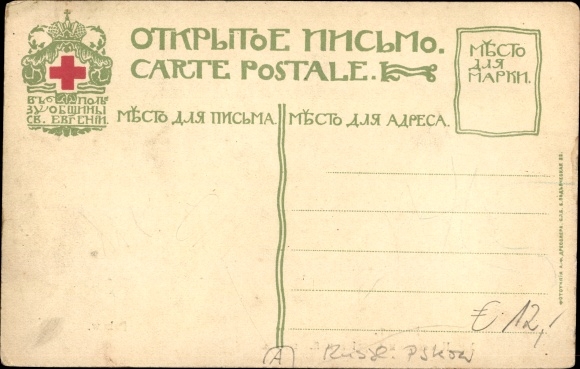 ОТКРЫТОЕ ПИСЬМО.
CARTE POSTALE.
МѢСТО
ДЛЯ
МАРКИ.
ВЪ ПОЛЬ
ЗУ ОБЩИНЫ
СВ. ЕВГЕНІИ.
МѢСТО ДЛЯ ПИСЬМА.
МѢСТО ДЛЯ АДРЕСА.
€ 12,
A
Russl. Pskow